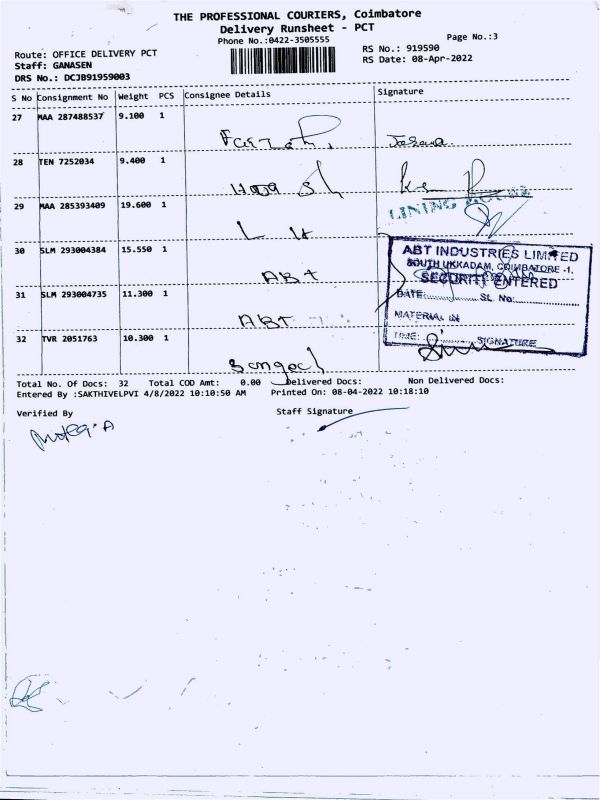 THE PROFESSIONAL COURIERS, Coimbatore
Delivery Runsheet - PCT
Phone No.:0422-3505555
Page No.:3
Route: OFFICE DELIVERY PCT
RS No.: 919590
Staff: GANASEN
RS Date: 08-Apr-2022
DRS No.: DCJB91959003
S No Consignment No Weight PCS Consignee Details Signature
27 MAA 287488537 9.100 1
28 TEN 7252034 9.400 1
29 MAA 285393409 19.600 1
LINING
30 SLM 293004384 15.550 1 ABT
ABT INDUSTRIES LIMITED
SOUTH UKKADAM, COIMBATORE -1.
SECURITY ENTERED
31 SLM 293004735 11.300 1 ABT
DATE: SL. No:
MATERIAL IN
32 TVR 2051763 10.300 1
TIME: SIGNATURE
Total No. Of Docs: 32 Total COD Amt: 0.00 Delivered Docs: Non Delivered Docs:
Entered By :SAKTHIVELPVI 4/8/2022 10:10:50 AM Printed On: 08-04-2022 10:18:10
Verified By Staff Signature